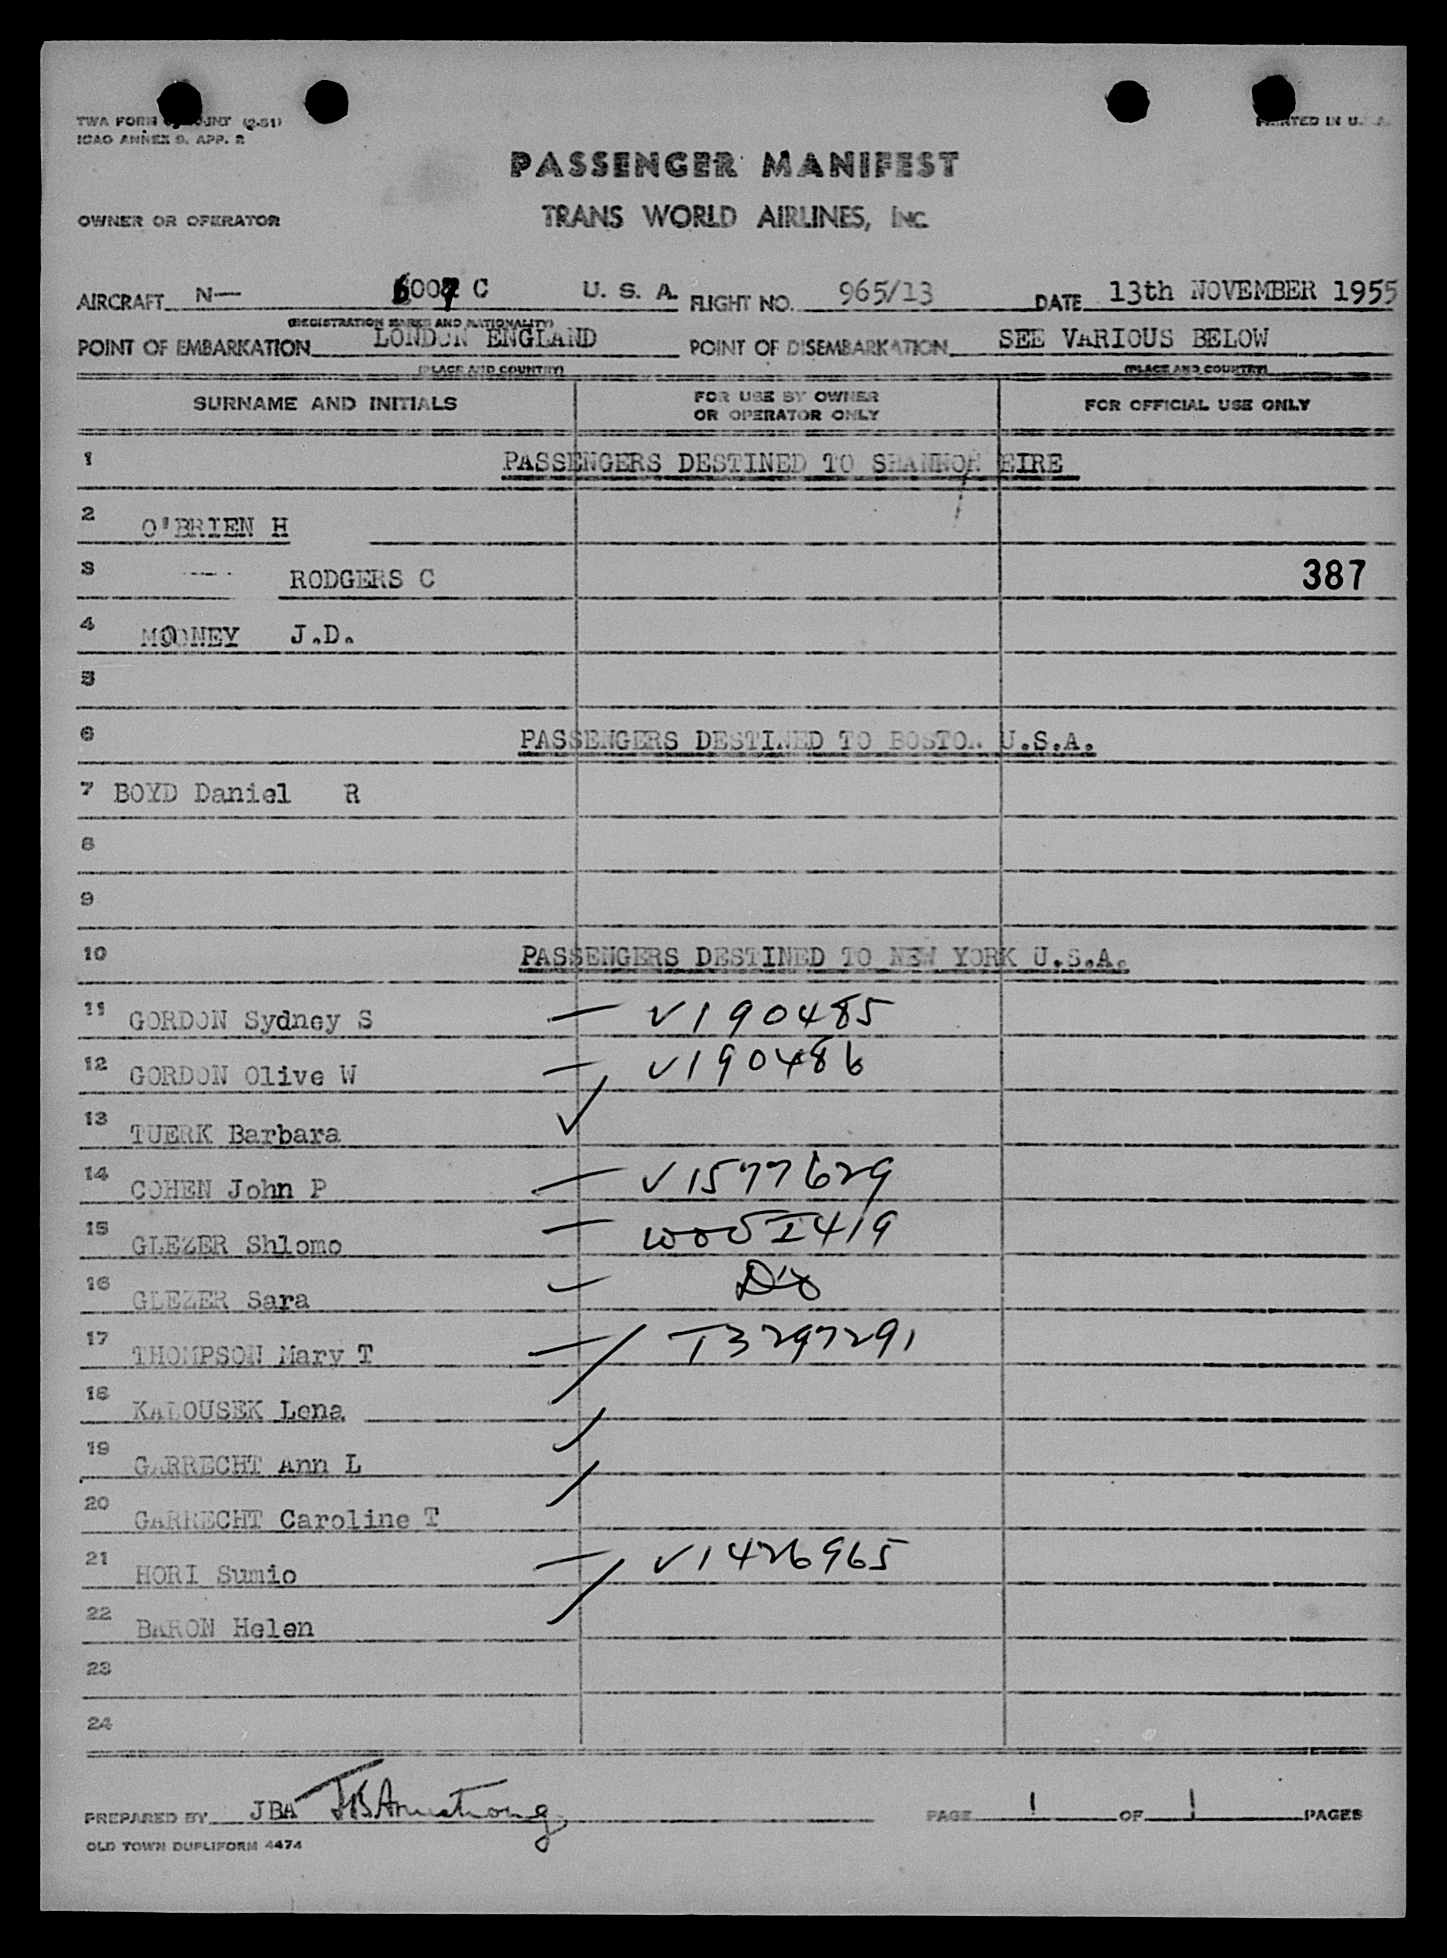 TWA FORM (2-51)
ICAO ANNEX 9, APP. 2
PRINTED IN U.S.A.
PASSENGER MANIFEST
OWNER OR OPERATOR TRANS WORLD AIRLINES, INC.
AIRCRAFT N— 6007 C U. S. A. FLIGHT NO. 965/13 DATE 13th NOVEMBER 1955
(REGISTRATION MARKS AND NATIONALITY)
POINT OF EMBARKATION LONDON ENGLAND POINT OF DISEMBARKATION SEE VARIOUS BELOW
(PLACE AND COUNTRY) (PLACE AND COUNTRY)
SURNAME AND INITIALS FOR USE BY OWNER OR OPERATOR ONLY FOR OFFICIAL USE ONLY
1 PASSENGERS DESTINED TO SHANNON EIRE
2 O'BRIEN H
3 RODGERS C 387
4 MOONEY J.D.
5
6 PASSENGERS DESTINED TO BOSTON U.S.A.
7 BOYD Daniel R
8
9
10 PASSENGERS DESTINED TO NEW YORK U.S.A.
11 GORDON Sydney S — V190485
12 GORDON Olive W — V190486
13 TUERK Barbara ✓
14 COHEN John P — V1577629
15 GLEZER Shlomo —
16 GLEZER Sara —
17 THOMPSON Mary T — T3297291
18 KALOUSEK Lena
19 GARRECHT Ann L
20 GARRECHT Caroline T
21 HORI Sumio — V1426965
22 BARON Helen
23
24
PREPARED BY JBA JBArmstrong PAGE 1 OF 1 PAGES
OLD TOWN DUPLIFORM 4474